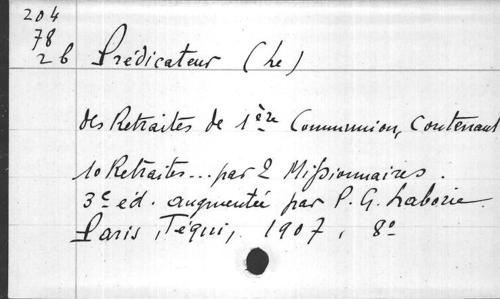 204
78
2b Prédicateur (Le)
des Retraites de 1ère Communion, contenant
10 Retraites... par 2 Missionnaires.
3e éd. augmentée par P. G. Laborie.
Paris, Téqui, 1907, 8o